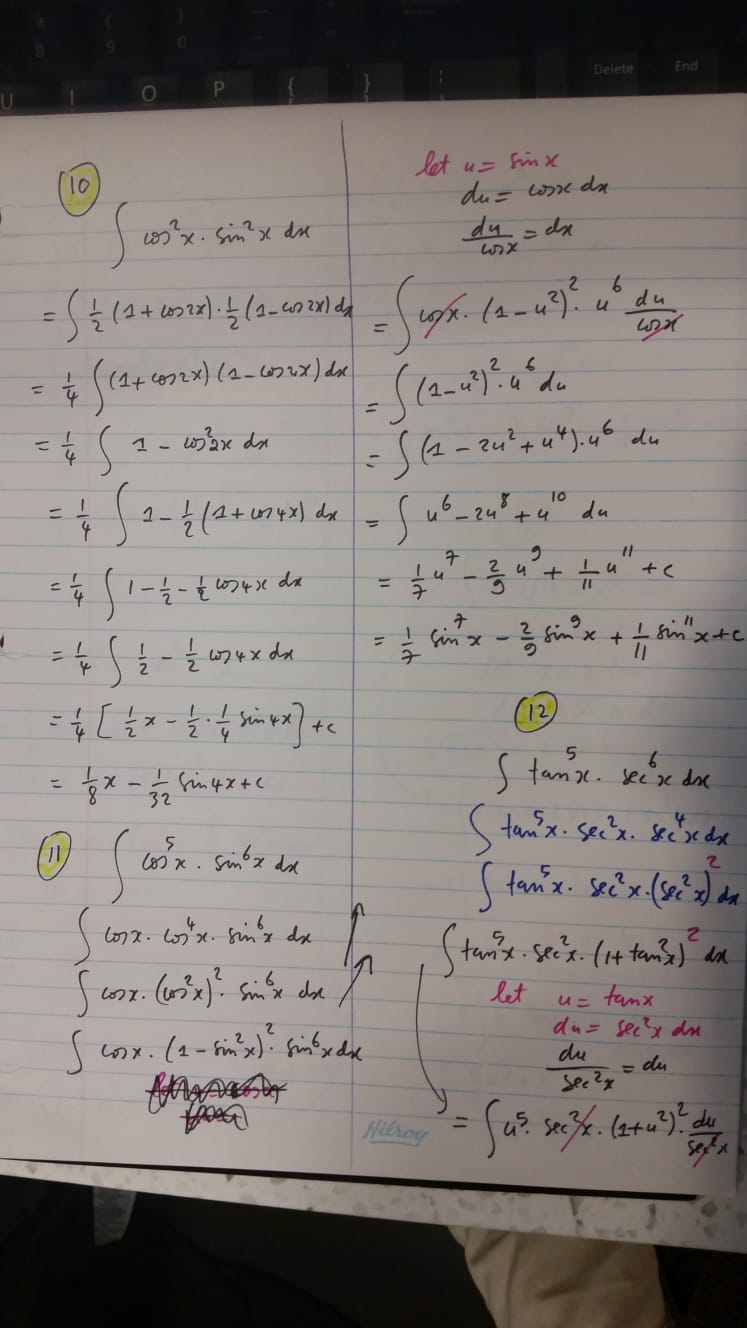 * ( ) _ +
8 9 0 - =
U I O P { } Delete End
10
∫ cos²x · sin²x dx
= ∫ ½ (1 + cos2x) · ½ (1 - cos2x) dx
= ¼ ∫ (1 + cos2x) (1 - cos2x) dx
= ¼ ∫ 1 - cos²2x dx
= ¼ ∫ 1 - ½ (1 + cos4x) dx
= ¼ ∫ 1 - ½ - ½ cos4x dx
= ¼ ∫ ½ - ½ cos4x dx
= ¼ [ ½ x - ½ · ¼ sin4x ] + c
= ⅛ x - 1/32 sin4x + c
11
∫ cos⁵x · sin⁶x dx
∫ cosx · cos⁴x · sin⁶x dx
∫ cosx · (cos²x)² · sin⁶x dx
∫ cosx · (1 - sin²x)² · sin⁶x dx
let u = sinx
du = cosx dx
du/cosx = dx
= ∫ cosx · (1 - u²)² · u⁶ du/cosx
= ∫ (1 - u²)² · u⁶ du
= ∫ (1 - 2u² + u⁴) · u⁶ du
= ∫ u⁶ - 2u⁸ + u¹⁰ du
= 1/7 u⁷ - 2/9 u⁹ + 1/11 u¹¹ + c
= 1/7 sin⁷x - 2/9 sin⁹x + 1/11 sin¹¹x + c
12
∫ tan⁵x · sec⁶x dx
∫ tan⁵x · sec²x · sec⁴x dx
∫ tan⁵x · sec²x · (sec²x)² dx
∫ tan⁵x · sec²x · (1 + tan²x)² dx
let u = tanx
du = sec²x dx
du/sec²x = du
= ∫ u⁵ · sec²x · (1 + u²)² · du/sec²x
Hilroy